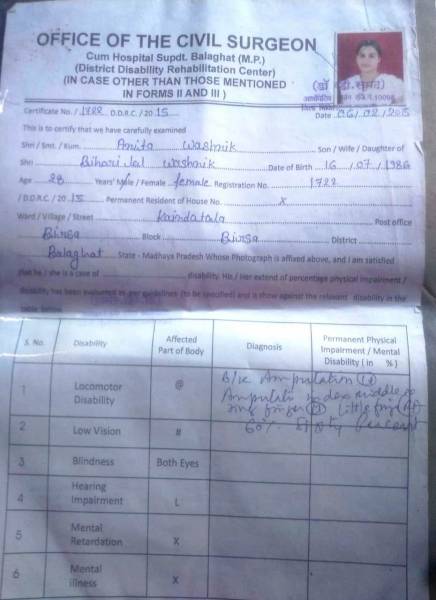 OFFICE OF THE CIVIL SURGEON
Cum Hospital Supdt. Balaghat (M.P.)
(District Disability Rehabilitation Center)
(IN CASE OTHER THAN THOSE MENTIONED
IN FORMS II AND III )
Certificate No. / 1722 D.D.R.C. / 2015
Date 06/02/2015
This is to certify that we have carefully examined
Shri / Smt. / Kum. Anita Washnik Son / Wife / Daughter of
Shri Biharilal Washnik Date of Birth 16 / 07 / 1986
Age 28 Years' Male / Female female Registration No. 1722
/ D.D.R.C. / 2015 Permanent Resident of House No. X
Ward / Village / Street Kaindatola Post office
Birsa Block Birsa District
Balaghat State - Madhaya Pradesh Whose Photograph is affixed above, and I am satisfied
that he / she is a case of disability. His / Her extend of percentage physical impairment /
disability has been evaluated as per guidelines (to be specified) and is show against the relevant disability in the
table below
S. No. Disability Affected Part of Body Diagnosis Permanent Physical Impairment / Mental Disability ( in %)
1 Locomotor Disability @ B/K Amputation index middle ring finger little 60% Sixty Percent
2 Low Vision #
3 Blindness Both Eyes
4 Hearing Impairment L
5 Mental Retardation X
6 Mental illness X